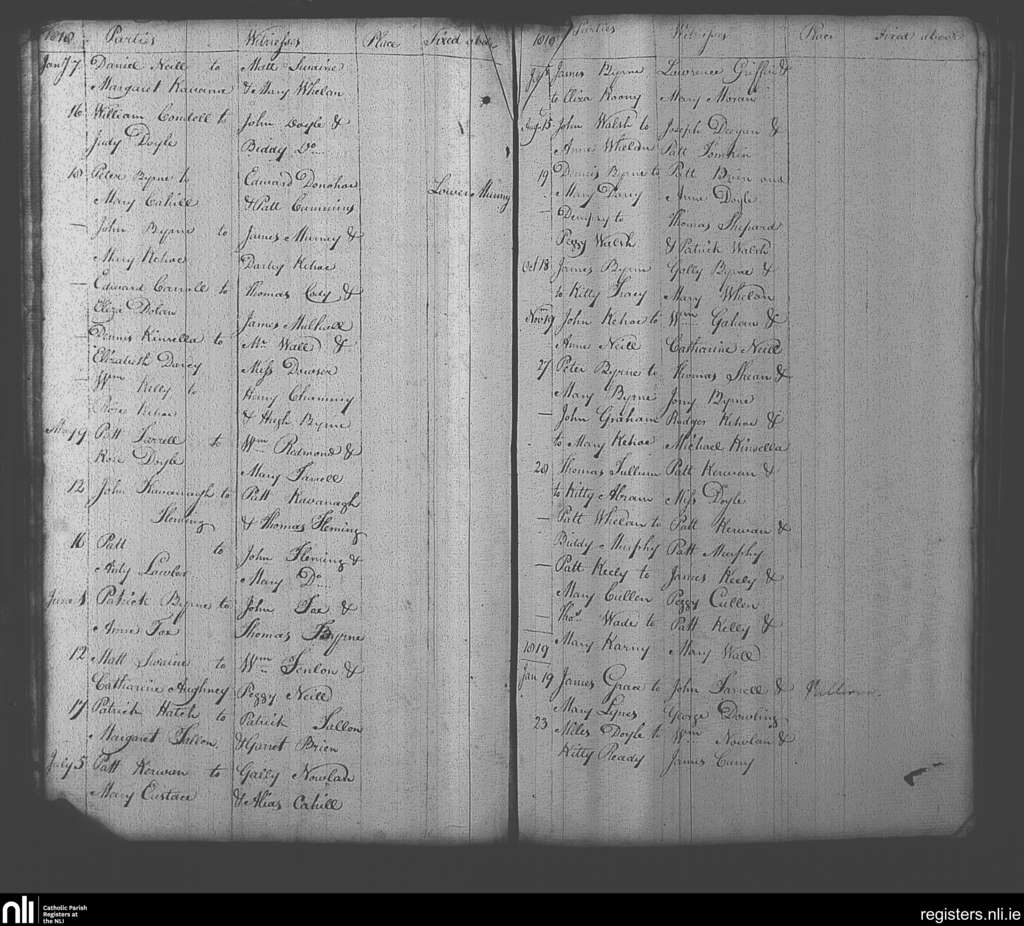 1818 Parties Witnesses Place Fixed abode
Jany 7 Daniel Neill to Matt Swaine
Margaret Kavana & Mary Whelan
16 William Condell to John Doyle &
Judy Doyle Biddy Do
18 Peter Byrne to Edward Donohoe
Mary Cahill & Patt Cummins Lower
— John Byrne to James Murney &
Mary Kehoe Darby Kehoe
— Edward Carroll to Thomas Cody &
Eliza Dolan James Mulhall
— Dennis Kinsella to Mr Wall &
Elizabeth Darcy Miss Dowser
— Wm Kelly to Henry
Rose Kehoe & Hugh Byrne
May 9 Patt Farrell to Wm Redmond &
Rose Doyle Mary Farrell
12 John Kavanagh to Patt Kavanagh
Fleming & Thomas Fleming
16 Patt to John Fleming &
Anty Lawlor Mary Do
June 1 Patrick Byrne to John Fox &
Anne Fox Thomas Byrne
12 Matt Swaine to Wm Fenlon &
Catharine Aughney Peggy Neill
17 Patrick Hatch to Patrick Fallon
Margaret Fallon & Garret Brien
July 5 Patt Kerwan to Gally Nowlan
Mary Eustace & Alias Cahill
1819 Parties Witnesses Place Fixed abode
James Byrne Lawrence Griffin &
to Eliza Roony Mary Moran
15 John Walsh to Joseph Deegan &
Anne Whelan Patt Tomkin
19 Dennis Byrne to Patt Brien and
Mary Darcy Anne Doyle
— Dempsy to Thomas Shepard
Peggy Walsh & Patrick Walsh
Oct 18 James Byrne Gally Byrne &
to Kitty Tracy Mary Whelan
Nov 19 John Kehoe to Wm Gahan &
Anne Neill Catharine Neill
27 Peter Byrne to Thomas Shean &
Mary Byrne Jony Byrne
— John Graham Rodger Kehoe &
to Mary Kehoe Michael Kinsella
28 Thomas Patt Kerwan &
to Kitty Abram Miss Doyle
— Patt Whelan to Patt Kerwan &
Biddy Murphy Patt Murphy
— Patt Keely to James Keely &
Mary Cullen Peggy Cullen
— Thos Wade to Patt Kelly &
1819 Mary Karny Mary Wall
Jan 19 James Grace to John Farrell &
Mary Lynes George Dowling
23 Miles Doyle to Wm Nowlan &
Kitty Ready James Curry
nli Catholic Parish
Registers at
the NLI
registers.nli.ie